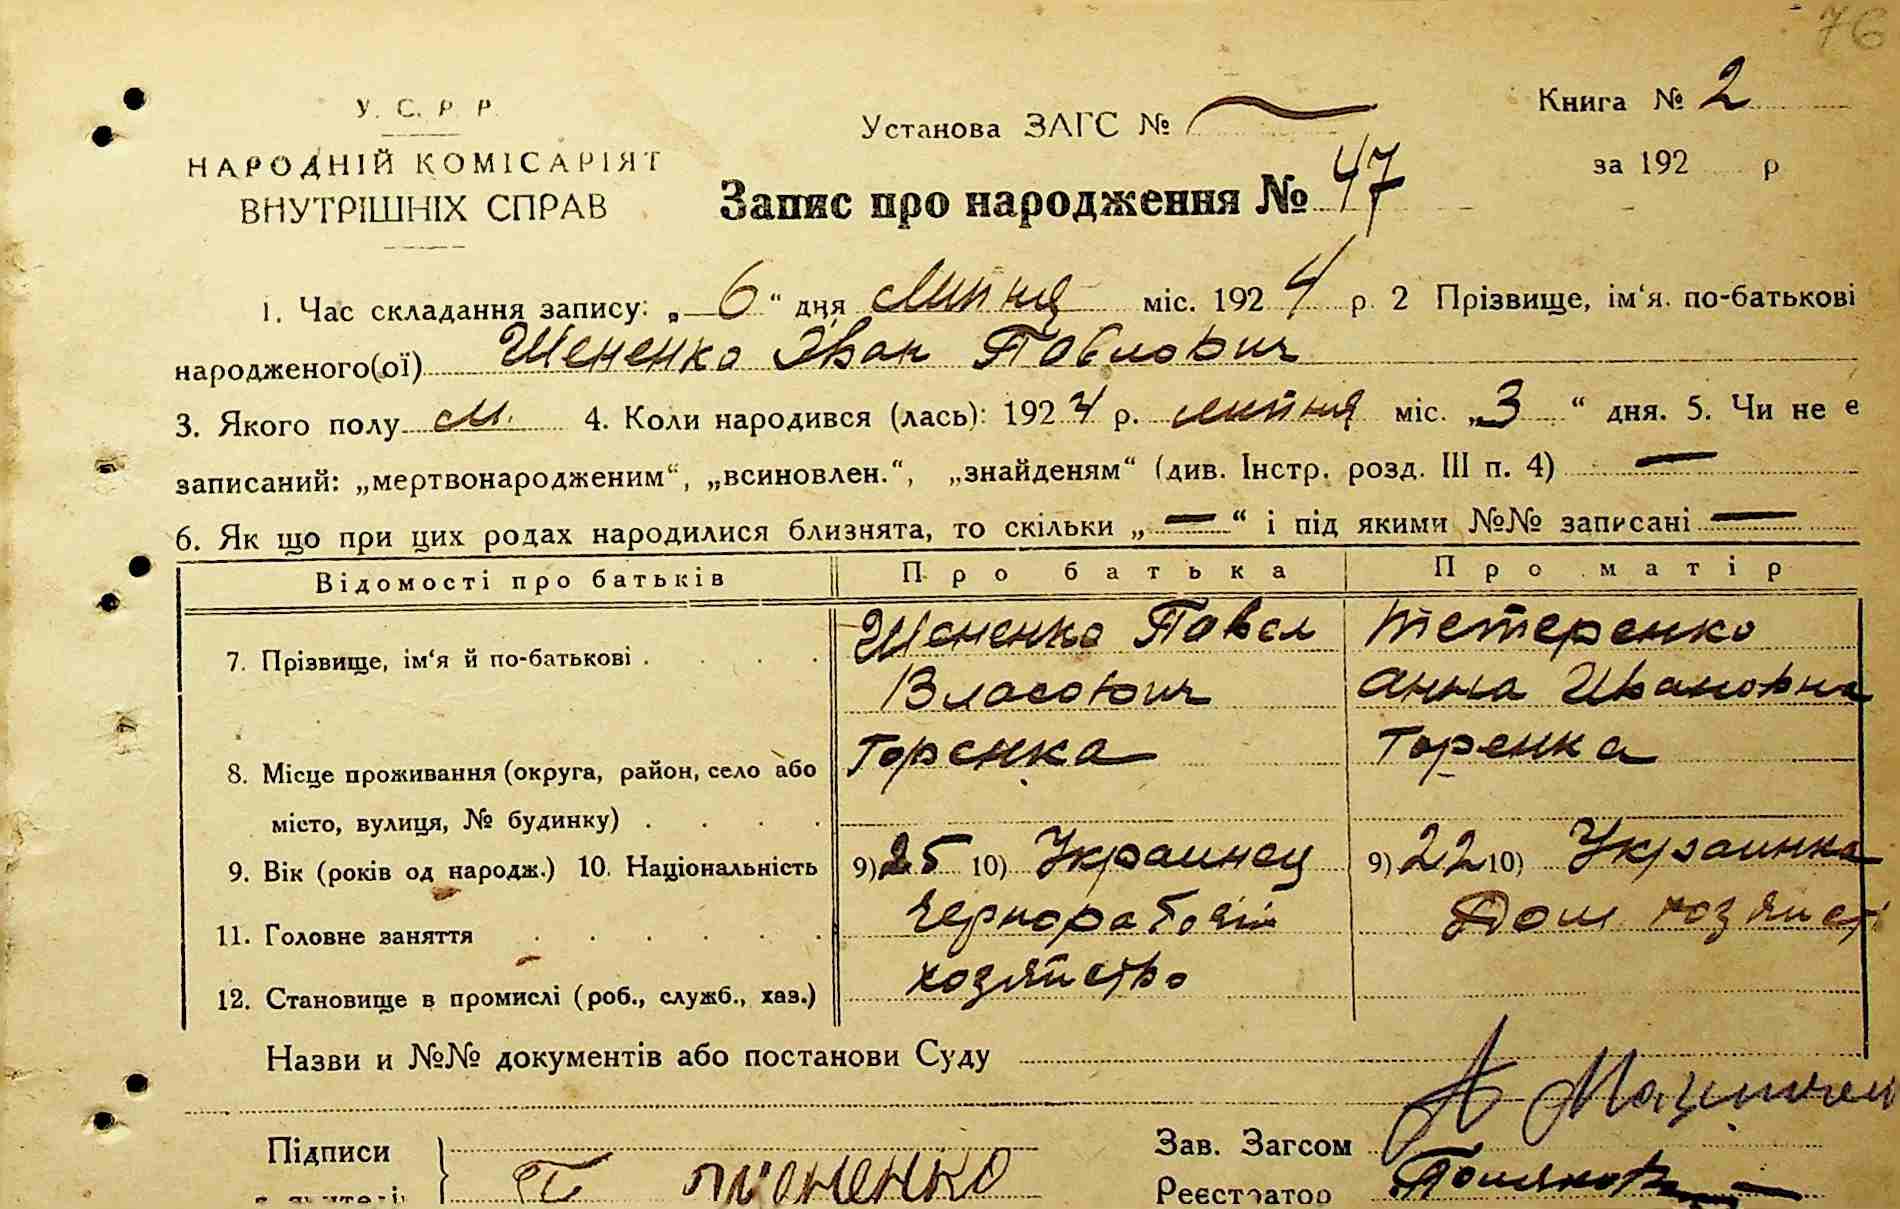 76
У. С. Р. Р.
НАРОДНІЙ КОМІСАРІЯТ
ВНУТРІШНІХ СПРАВ
Установа ЗАГС №
Книга № 2
за 192 р
Запис про народження № 47
1. Час складання запису: „ 6 “ дня Липня міс. 1924 р. 2 Прізвище, ім‘я. по-батькові
народженого(ої) Щененко Іван Павлович
3. Якого полу м. 4. Коли народився (лась): 1924 р. липня міс. „ 3 “ дня. 5. Чи не є
записаний: „мертвонародженим“, „всиновлен.“, „знайденям“ (див. Інстр. розд. III п. 4) —
6. Як що при цих родах народилися близнята, то скільки „ — “ і під якими №№ записані —
Відомості про батьків Про батька Про матір
7. Прізвище, ім‘я й по-батькові . . . . Щененко Павел Тетеренко
Власович Анна Ивановна
8. Місце проживання (округа, район, село або Горенка Горенка
місто, вулиця, № будинку) . . . .
9. Вік (років од народж.) 10. Національність 9) 25 10) Украинец 9) 22 10) Украинка
11. Головне заняття . . . . . . Чернорабочій Дом хозяйст
12. Становище в промислі (роб., служб., хаз.) хозяйство
Назви и №№ документів або постанови Суду
Підписи
Зав. Загсом А
П Щененко
Реєстратор